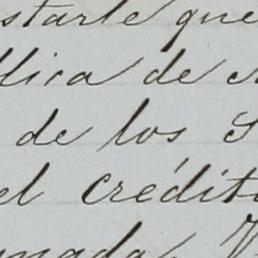 starle que
lica de
de los S
el crédit
nada